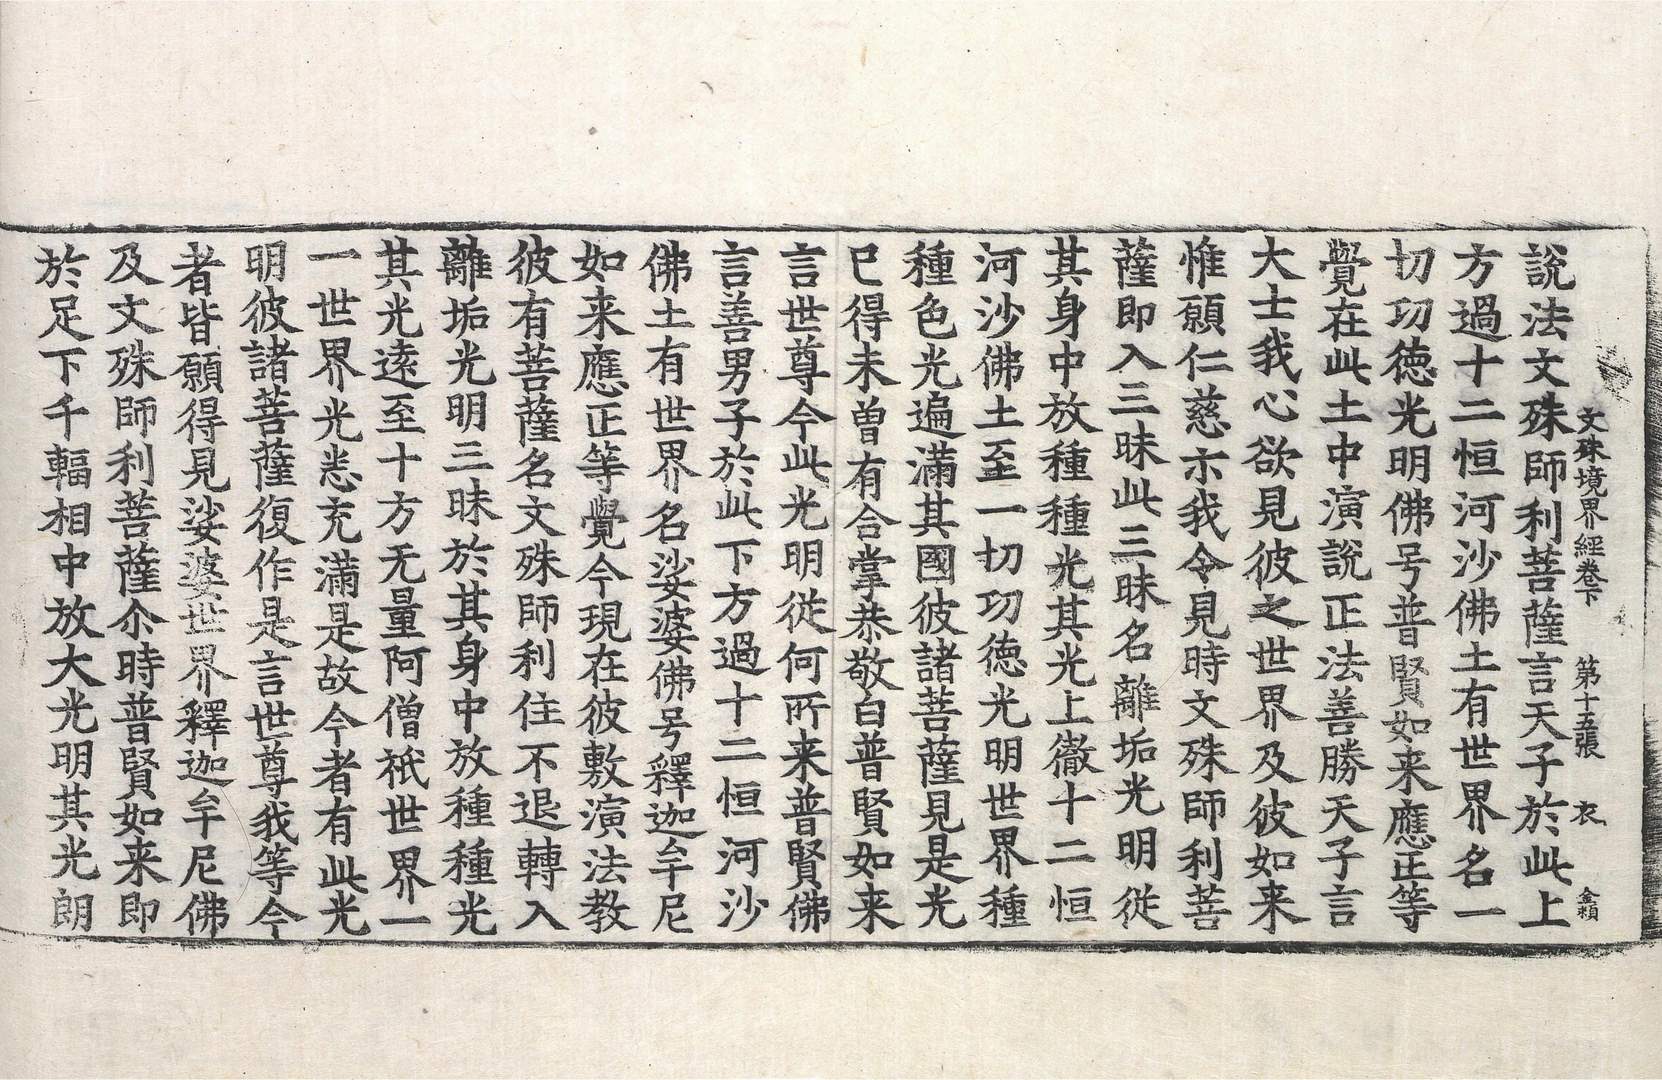 文殊境界經卷下 第十五張 衣 金賴
說法文殊師利菩薩言天子於此上
方過十二恒河沙佛土有世界名一
切功德光明佛号普賢如来應正等
覺在此土中演說正法善勝天子言
大士我心欲見彼之世界及彼如来
惟願仁慈示我令見時文殊師利菩
薩即入三昧此三昧名離垢光明從
其身中放種種光其光上徹十二恒
河沙佛土至一切功德光明世界種
種色光遍滿其國彼諸菩薩見是光
已得未曽有合掌恭敬白普賢如来
言世尊今此光明從何所来普賢佛
言善男子於此下方過十二恒河沙
佛土有世界名娑婆佛号釋迦牟尼
如来應正等覺今現在彼敷演法教
彼有菩薩名文殊師利住不退轉入
離垢光明三昧於其身中放種種光
其光遠至十方无量阿僧祇世界一
一世界光悉充滿是故今者有此光
明彼諸菩薩復作是言世尊我等今
者皆願得見娑婆世界釋迦牟尼佛
及文殊師利菩薩尒時普賢如来即
於足下千輻相中放大光明其光朗